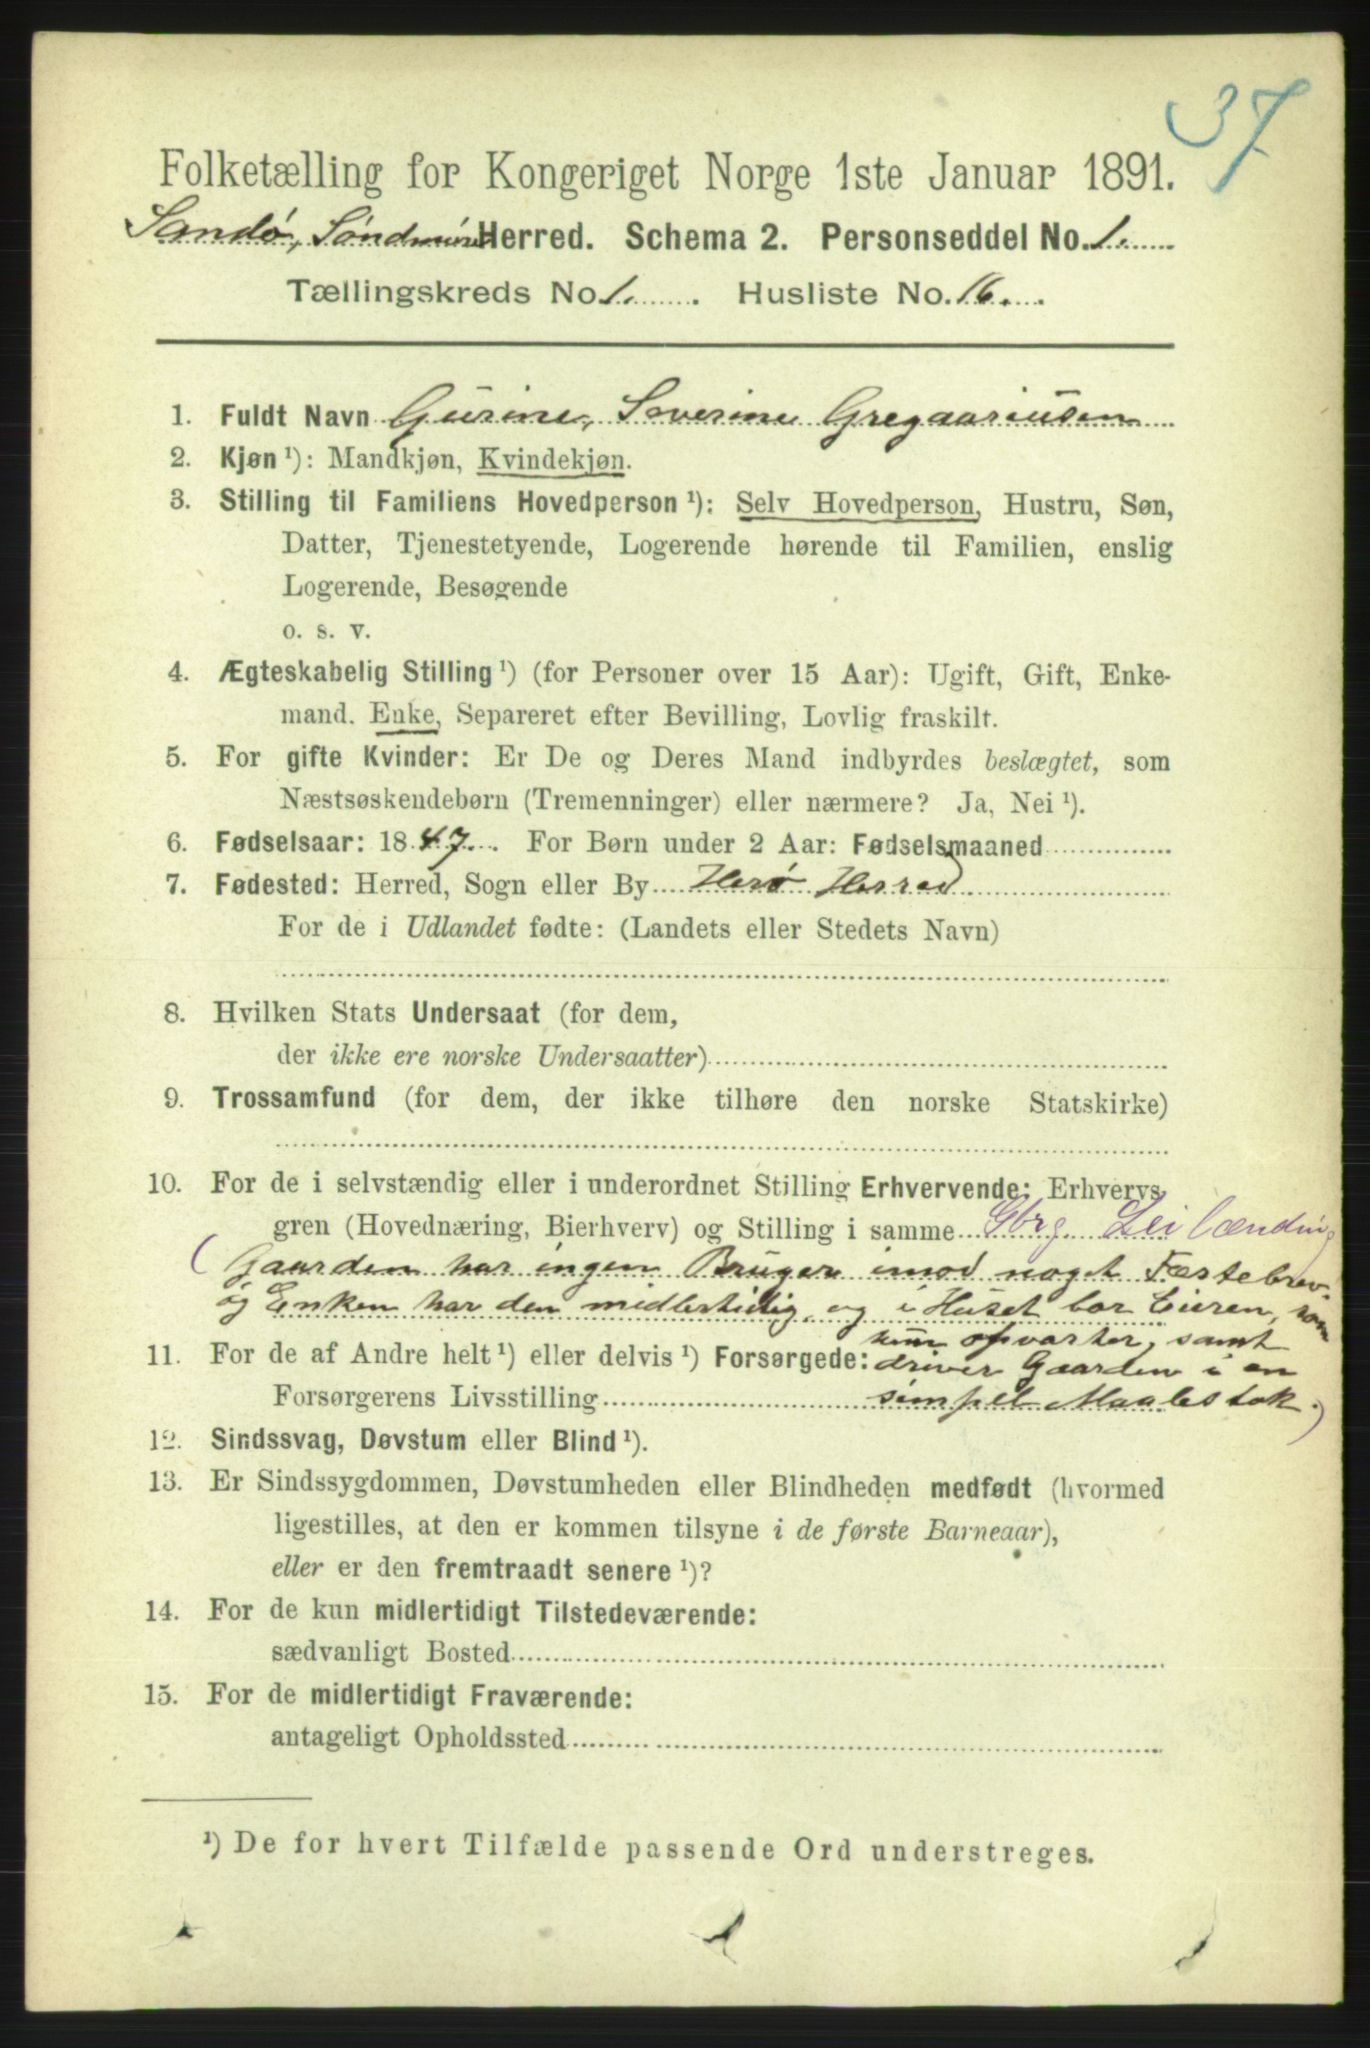 37
Folketælling for Kongeriget Norge 1ste Januar 1891.
Sandø, Søndmøre Herred. Schema 2. Personseddel No. 1.
Tællingskreds No 1. Husliste No. 16.
1. Fuldt Navn Gurine, Severine Gregaariusen
2. Kjøn ¹): Mandkjøn, Kvindekjøn.
3. Stilling til Familiens Hovedperson ¹): Selv Hovedperson, Hustru, Søn,
Datter, Tjenestetyende, Logerende hørende til Familien, enslig
Logerende, Besøgende
o. s. v.
4. Ægteskabelig Stilling ¹) (for Personer over 15 Aar): Ugift, Gift, Enke-
mand. Enke, Separeret efter Bevilling, Lovlig fraskilt.
5. For gifte Kvinder: Er De og Deres Mand indbyrdes beslægtet, som
Næstsøskendebørn (Tremenninger) eller nærmere? Ja, Nei ¹).
6. Fødselsaar: 1847. For Børn under 2 Aar: Fødselsmaaned
7. Fødested: Herred, Sogn eller By Herø Herred
For de i Udlandet fødte: (Landets eller Stedets Navn)
8. Hvilken Stats Undersaat (for dem,
der ikke ere norske Undersaatter)
9. Trossamfund (for dem, der ikke tilhøre den norske Statskirke)
10. For de i selvstændig eller i underordnet Stilling Erhvervende: Erhvervs
gren (Hovednæring, Bierhverv) og Stilling i samme Gbrg. Leilænding
(Gaarden har ingen Bruger imod noget Fæstebrev.
og Enken har den midlertidig, og i Huset bor Eieren, som
hun opvarter, samt
11. For de af Andre helt ¹) eller delvis ¹) Forsørgede: driver Gaarden i en
Forsørgerens Livsstilling simpel Maalestok.)
12. Sindssvag, Døvstum eller Blind ¹).
13. Er Sindssygdommen, Døvstumheden eller Blindheden medfødt (hvormed
ligestilles, at den er kommen tilsyne i de første Barneaar),
eller er den fremtraadt senere ¹)?
14. For de kun midlertidigt Tilstedeværende:
sædvanligt Bosted
15. For de midlertidigt Fraværende:
antageligt Opholdssted
¹) De for hvert Tilfælde passende Ord understreges.